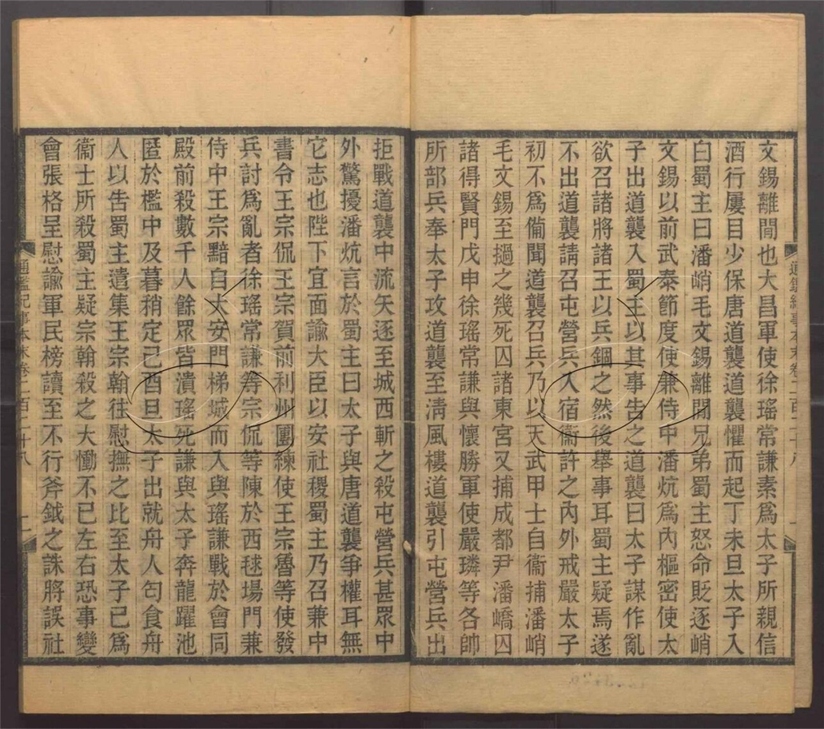 文錫離間也大昌軍使徐瑤常謙素爲太子所親信
酒行屢目少保唐道襲道襲懼而起丁未旦太子入
白蜀主曰潘峭毛文錫離間兄弟蜀主怒命貶逐峭
文錫以前武泰節度使兼侍中潘炕爲內樞密使太
子出道襲入蜀主以其事告之道襲曰太子謀作亂
欲召諸將諸王以兵錮之然後舉事耳蜀主疑焉遂
不出道襲請召屯營兵入宿衞許之內外戒嚴太子
初不爲備聞道襲召兵乃以天武甲士自衞捕潘峭
毛文錫至撾之幾死囚諸東宮又捕成都尹潘嶠囚
諸得賢門戊申徐瑤常謙與懷勝軍使嚴璘等各帥
所部兵奉太子攻道襲至淸風樓道襲引屯營兵出
拒戰道襲中流矢逐至城西斬之殺屯營兵甚眾中
外驚擾潘炕言於蜀主曰太子與唐道襲爭權耳無
它志也陛下宜面諭大臣以安社稷蜀主乃召兼中
書令王宗侃王宗賀前利州團練使王宗魯等使發
兵討爲亂者徐瑤常謙等宗侃等陳於西毬場門兼
侍中王宗黯自大安門梯城而入與瑤謙戰於會同
殿前殺數千人餘眾皆潰瑤死謙與太子奔龍躍池
匿於檻中及暮稍定己酉旦太子出就舟人匄食舟
人以告蜀主遣集王宗翰往慰撫之比至太子已爲
衞士所殺蜀主疑宗翰殺之大慟不已左右恐事變
會張格呈慰諭軍民榜讀至不行斧鉞之誅將誤社
通鑑紀事本末卷二百二十八